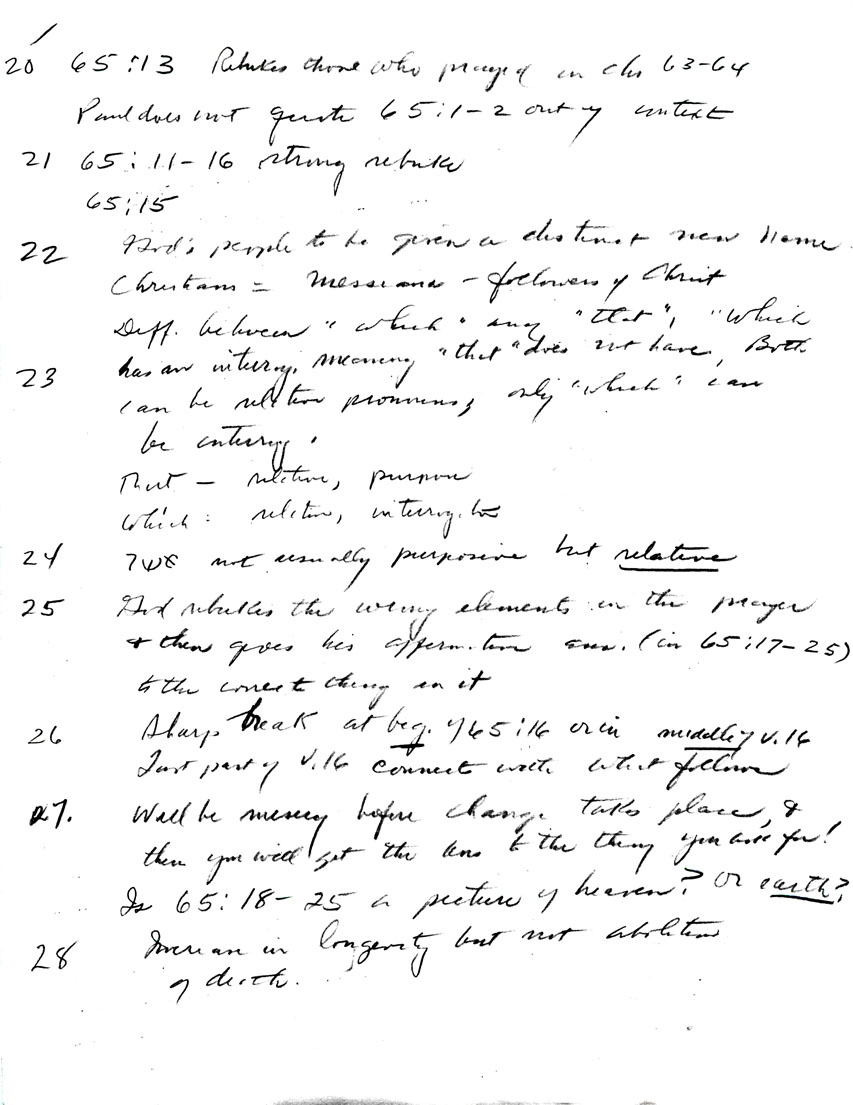 20 65:13 Rebukes those who prayed in chs 63-64
Paul does not quote 65:1-2 out of context
21 65:11-16 strong rebuke
65:15
22 God's people to be given a distinct new Name.
Christians = Messians - followers of Christ
Diff. between "which" and "that", "Which
23 has an interrog. meaning "that" does not have, Both
can be relative pronouns, only "which" can
be interrog.
That - relative, purpose
Which: relative, interrogative
24 אשר not usually purposive but relative
25 God rebukes the wrong elements in the prayer
& then gives his affirmative ans. (in 65:17-25)
to the correct thing in it
26 Sharp break at beg. of 65:16 or in middle of v.16
Last part of v.16 connects with what follows
27. Will be misery before change takes place, &
then you will get the ans to the thing you ask for!
Is 65:18-25 a picture of heaven? or earth?
28 Increase in longevity but not abolition
of death.